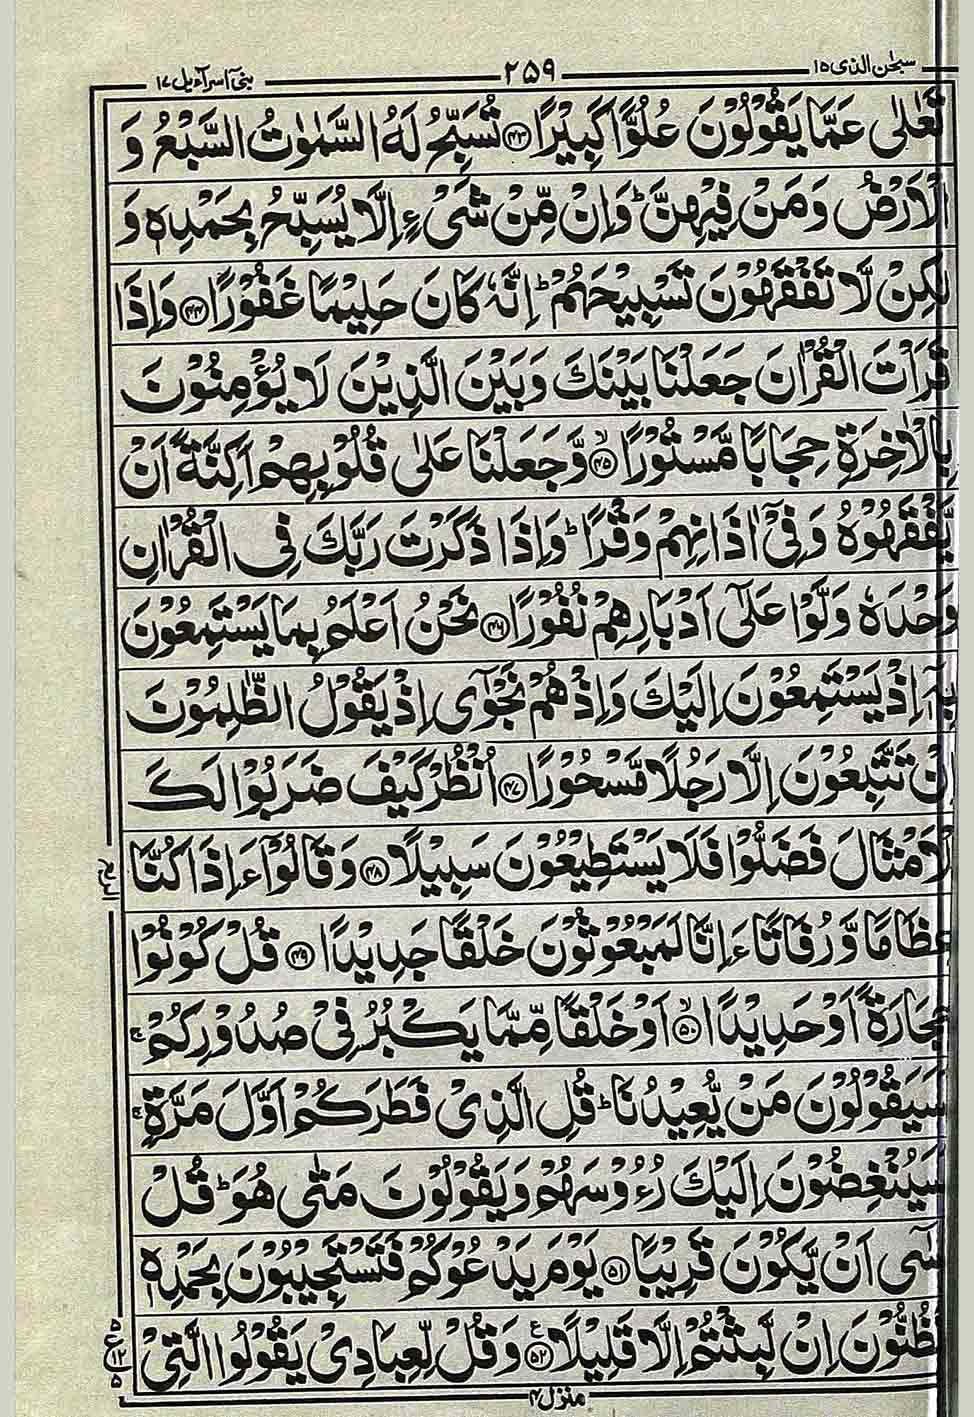 سبحٰن الذی ١٥
٢٥٩
بنیۤ اسرآءیل ١٧
تَعٰلٰى عَمَّا يَقُوْلُوْنَ عُلُوًّا كَبِيْرًا ۝۴۳ تُسَبِّحُ لَهُ السَّمٰوٰتُ السَّبْعُ وَ
الْاَرْضُ وَمَنْ فِيْهِنَّ ؕ وَاِنْ مِّنْ شَىْءٍ اِلَّا يُسَبِّحُ بِحَمْدِهٖ وَ
لٰكِنْ لَّا تَفْقَهُوْنَ تَسْبِيْحَهُمْ ؕ اِنَّهٗ كَانَ حَلِيْمًا غَفُوْرًا ۝۴۴ وَاِذَا
قَرَاْتَ الْقُرْاٰنَ جَعَلْنَا بَيْنَكَ وَبَيْنَ الَّذِيْنَ لَا يُؤْمِنُوْنَ
بِالْاٰخِرَةِ حِجَابًا مَّسْتُوْرًا ۙ۝۴۵ وَّجَعَلْنَا عَلٰى قُلُوْبِهِمْ اَكِنَّةً اَنْ
يَّفْقَهُوْهُ وَفِىْۤ اٰذَانِهِمْ وَقْرًا ؕ وَاِذَا ذَكَرْتَ رَبَّكَ فِى الْقُرْاٰنِ
وَحْدَهٗ وَلَّوْا عَلٰۤى اَدْبَارِهِمْ نُفُوْرًا ۝۴۶ نَحْنُ اَعْلَمُ بِمَا يَسْتَمِعُوْنَ
بِهٖۤ اِذْ يَسْتَمِعُوْنَ اِلَيْكَ وَاِذْ هُمْ نَجْوٰۤى اِذْ يَقُوْلُ الظّٰلِمُوْنَ
اِنْ تَتَّبِعُوْنَ اِلَّا رَجُلًا مَّسْحُوْرًا ۝۴۷ اُنْظُرْ كَيْفَ ضَرَبُوْا لَكَ
الْاَمْثَالَ فَضَلُّوْا فَلَا يَسْتَطِيْعُوْنَ سَبِيْلًا ۝۴۸ وَقَالُوْۤا ءَاِذَا كُنَّا
عِظَامًا وَّرُفَاتًا ءَاِنَّا لَمَبْعُوْثُوْنَ خَلْقًا جَدِيْدًا ۝۴۹ قُلْ كُوْنُوْا
حِجَارَةً اَوْ حَدِيْدًا ۙ۝۵۰ اَوْ خَلْقًا مِّمَّا يَكْبُرُ فِىْ صُدُوْرِكُمْ ۚ
فَسَيَقُوْلُوْنَ مَنْ يُّعِيْدُنَا ؕ قُلِ الَّذِىْ فَطَرَكُمْ اَوَّلَ مَرَّةٍ ۚ
فَسَيُنْغِضُوْنَ اِلَيْكَ رُءُوْسَهُمْ وَيَقُوْلُوْنَ مَتٰى هُوَ ؕ قُلْ
عَسٰۤى اَنْ يَّكُوْنَ قَرِيْبًا ۝۵۱ يَوْمَ يَدْعُوْكُمْ فَتَسْتَجِيْبُوْنَ بِحَمْدِهٖ
وَتَظُنُّوْنَ اِنْ لَّبِثْتُمْ اِلَّا قَلِيْلًا ۝۵۲ع وَقُلْ لِّعِبَادِىْ يَقُوْلُوا الَّتِىْ
٥
ع
١٢
٥
منزل ۴